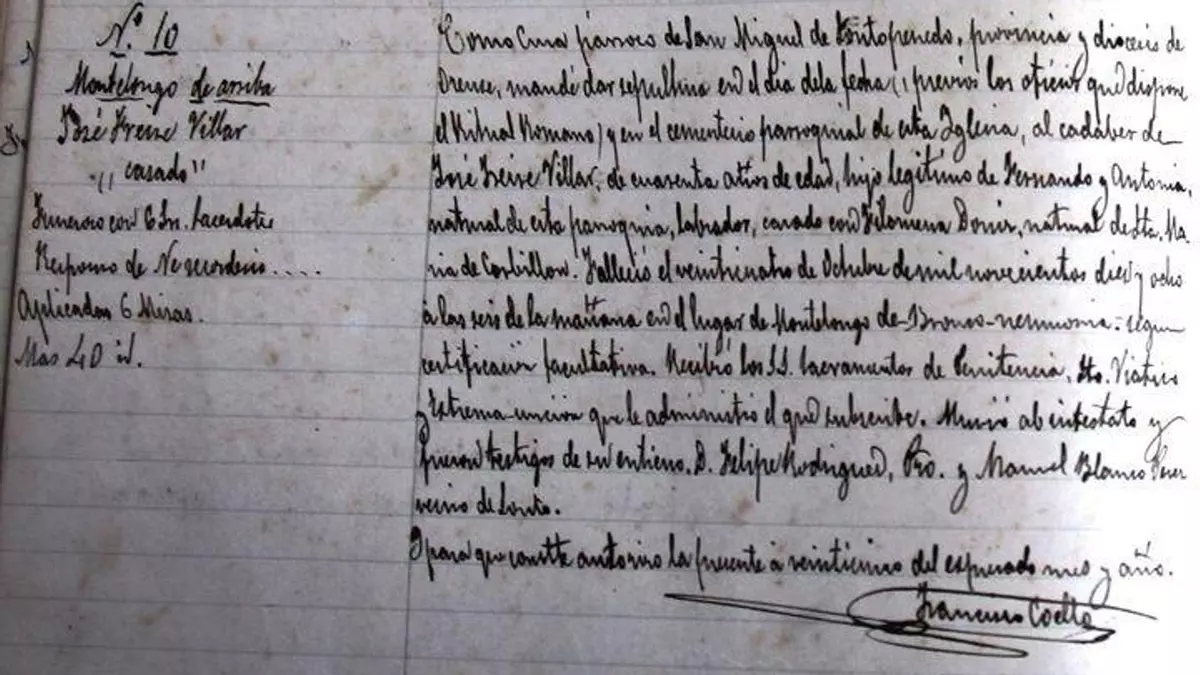 Nº 10
Montelongo de arriba
José Freire Villar
"casado"
Funerario con 6 Sres. Sacerdotes
Responso de Ne recorderis....
Aplicadas 6 Misas.
Mas 40 id.
Como Cura párroco de San Miguel de Pontopenedo, provincia y diócesis de
Orense, mandé dar sepultura en el dia de la fecha (, previos los oficios que dispone
el Ritual Romano) y en el cementerio parroquial de esta Iglesia, al cadaber de
José Freire Villar, de cuarenta años de edad, hijo legítimo de Fernando y Antonia,
natural de esta parroquia, labrador, casado con Filomena , natural de Sta. Ma-
ria de Corbillon. Falleció el veinticuatro de Octubre de mil novecientos diez y ocho
á las seis de la mañana en el lugar de Montelongo de-Bronco-neumonia-segun
certificación facultativa. Recibió los SS. Sacramentos de Penitencia, Sto. Viatico
y Extrema-uncion que le administró el que subscribe. Murió abintestato y
fueron testigos de su entierro. D. Felipe Rodriguez, Pro. y Manuel Blanco Perez
vecino de .
Y para que conste autorizo la presente á veinticinco del expresado mes y año.
Francisco Coello